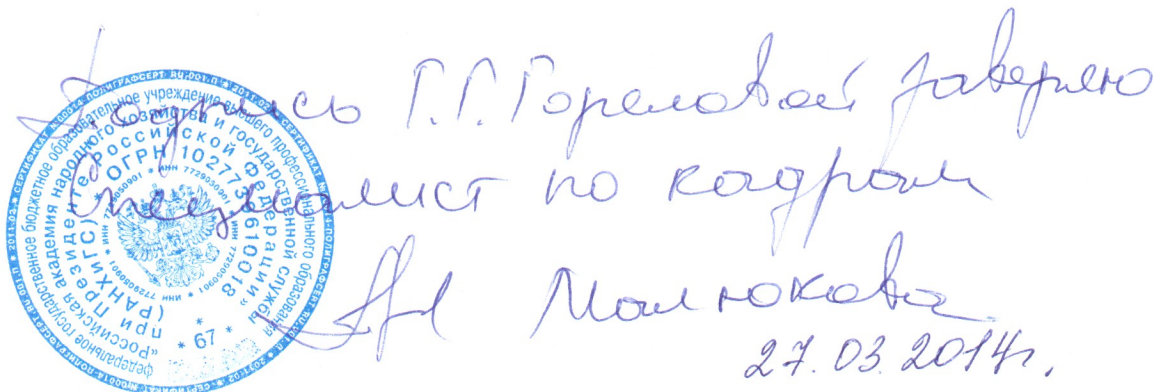 Подпись Г.Г. Гореловой заверяю
Специалист по кадрам
Малюкова
27.03.2014г.
федеральное государственное бюджетное образовательное учреждение высшего профессионального образования
"Российская академия народного хозяйства и государственной службы
при Президенте Российской Федерации"
(РАНХиГС) * ОГРН 1027739610018
* 67 *